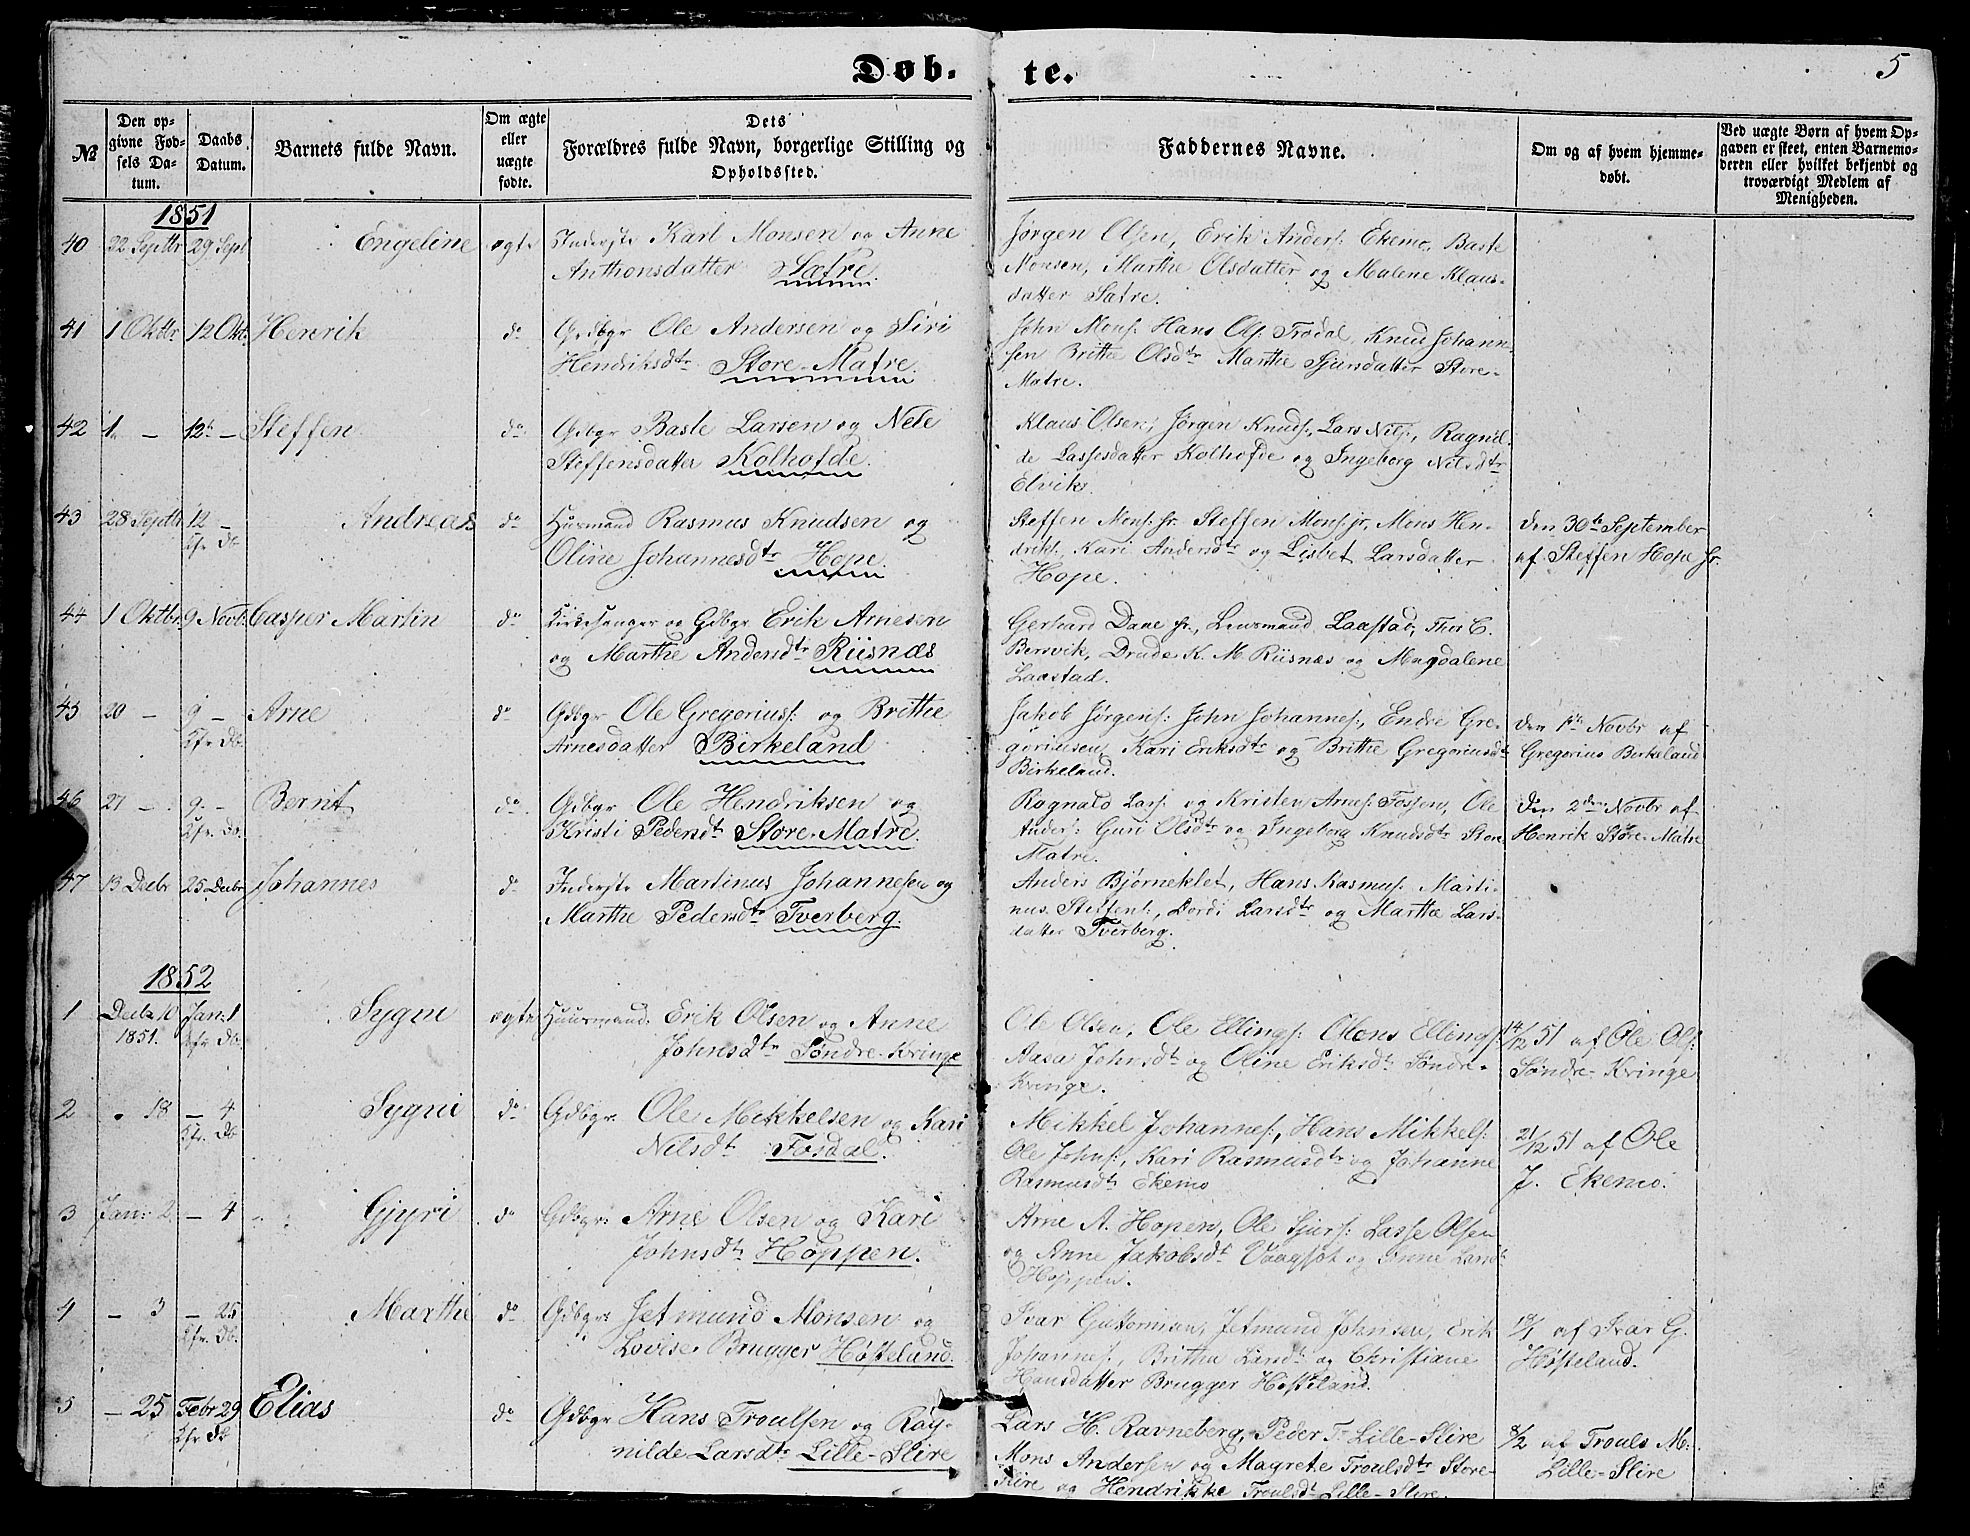 Døb- te. 5
№
Den opgivne Fødsels Datum.
Daabs Datum.
Barnets fulde Navn.
Om ægte eller uægte fødte.
Dets Forældres fulde Navn, borgerlige Stilling og Opholdssted.
Faddernes Navne.
Om og af hvem hjemmedøbt.
Ved uægte Børn af hvem Opgaven er skeet, enten Barnemoderen eller hvilket bekjendt og troværdigt Medlem af Menigheden.
1851
40 22 Septbr 29 Sept Engeline ægte Inderste Karl Monsen og Anne
Anthonsdatter Sætre.
Jørgen Olsen, Erik Anders: Ekemo, Baste
Monsen, Marthe Olsdatter og Malene Klaus-
datter Sætre.
41 1 Oktbr 12 Okt: Henrik do Gdbgr Ole Andersen og Siri
Hendriksdtr Store-Matre.
John Mons: Hans Ols: Trodal, Knud Johann-
sen Brithe Olsdtr Marthe Sjursdatter Store-
Matre.
42 1 — 12te — Steffen do Gdbgr Baste Larsen og Nele
Steffensdatter Kolhofde.
Klaus Olsen, Jørgen Knuds:, Lars Nils:, Ragnil-
de Lassesdatter Kolhofde og Ingeborg Nilsdtr
Elvik.
43 28 Septbr 12 — Andreas do Husmand Rasmus Knudsen og
Kfr Db
Oline Johannesdtr Hope.
Steffen Mons: sr. Steffen Mons: jr, Mons Hen-
driks:, Kari Andersdtr og Lisbet Larsdatter
Hope.
Den 30te September
af Steffen Hope sr.
44 1 Oktbr 9 Novb: Casper Martin do Kirkesanger og Gdbgr Erik Arnesen
og Marthe Andersdtr Riisnæs
Gerhard Dane sr., Lensmand Laastad, Thor C.
Bersvik, Drude K. M. Riisnæs og Magdalene
Laastad.
45 20 — 9 — Arne do Gdbgr Ole Gregorius: og Brithe
Kfr Db.
Arnesdatter Birkeland
Jakob Jørgens: John Johannes:, Endre Gre-
goriusen, Kari Eriksdtr og Brithe Gregoriusdt
Birkeland.
den 1ste Novbr af
Gregorius Birkeland
46 27 — 9. — Bernt do Gdbgr Ole Hendriksen og
Kfr. Db.
Kristi Pedersdt Store-Matre.
Ragnald Lars: og Kristen Arnes: Fossen, Ole
Anders: Guri Olsdtr og Ingeborg Knudsdtr Store
Matre.
Den 2den Novbr af
Henrik Store-Matre
47 13 Decbr 25 Decbr Johannes do Inderste Martinus Johannesen og
Marthe Pedersdtr Tverberg.
Anders Bjørneklet, Hans Rasmus: Marti-
nus Steffens:, Dordi Larsdtr og Marthe Lars-
datter Tverberg.
1852
1 Decbr 10 Jan: 1 Sygni ægte Huusmand Erik Olsen og Anne
1851. Kfr Db.
Johnsdtr Søndre-Kringe
Ole Olsen, Ole Ellings: Mons Ellings:
Aasa Johnsdt og Oline Eriksdt Søndre-
Kringe.
14/12 51 af Ole Ols:
Søndre-Kringe
2 " 18 — 4 Sygni do Gdbgr. Ole Mikkelsen og Kari
Kfr. Db
Nilsdt Fosdal.
Mikkel Johannes:, Hans Mikkels:
Ole Johns:, Kari Rasmusdtr og Johanne
Rasmusdt Ekemo
21/12 51 af Ole
J. Ekemo.
3 Jan: 2. — 4 Gjyri do Gdbgr: Arne Olsen og Kari
Johnsdt Hoppen.
Arne A. Hopen, Ole Sjurs: Lasse Olsen
og Anne Jakobsdt Vaagsøt og Anne Larsdt
Hoppen.
4 — 3 — 25 Marthe do Gdbgr: Jetmund Monsen og
Kfr. Db.
Lovise Brugger Høsteland.
Ivar Guttormsen, Jetmund Johnsen, Erik
Johannes:, Brithe Larsdt og Christiane
Hansdatter Brugger Høsteland.
10/1 af Ivar G.
Høsteland.
5 — 25 Febr 29 Elias do Gdbgr Hans Troulsen og Rag-
Kfr Db
nilde Larsdtr Lille-Slire
Lars H. Ravneberg, Peder T. Lille-Slire
Mons Andersen og Magrete Troulsdtr Store-
Slire og Hendrikke Troulsdt Lille-Slire.
8/2 af Trouls M:
Lille-Slire